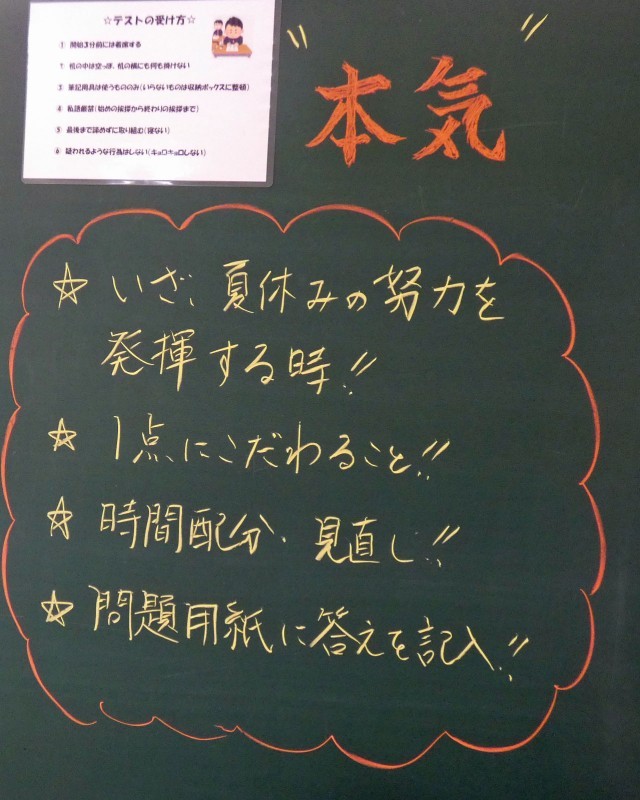 ☆テストの受け方☆
① 開始3分前には着席する
② 机の中は空っぽ、机の横にも何も掛けない
③ 筆記用具は使うもののみ(いらないものは収納ボックスに整頓)
④ 私語厳禁(始めの挨拶から終わりの挨拶まで)
⑤ 最後まで諦めずに取り組む(寝ない)
⑥ 疑われるような行為はしない(キョロキョロしない)
"本気"
☆ いざ、夏休みの努力を
発揮する時!!
☆ 1点にこだわること!!
☆ 時間配分、見直し!!
☆ 問題用紙に答えを記入!!